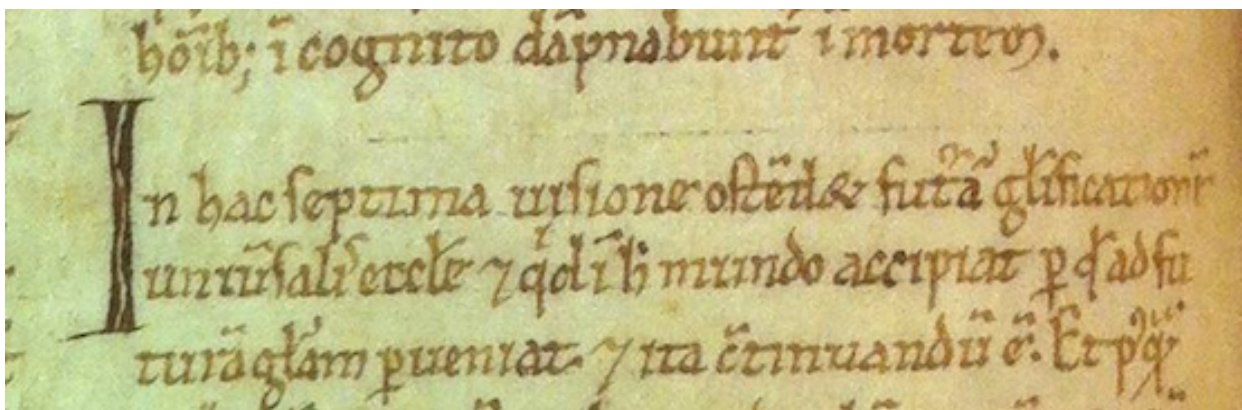 hōib; ī cognito dāpnabunt̄ ī mortem.
In hac septima uisione ostēd& futᷓā gl̄ificationē
uniu̓salis eccl̄e ⁊ qͥd ī h̄ mundo accipiat ꝑ qd̓ ad fu
turā gl̄am ꝑueniat. ⁊ ita ↄ̄tinuandū ē. Et pꝰqͣ